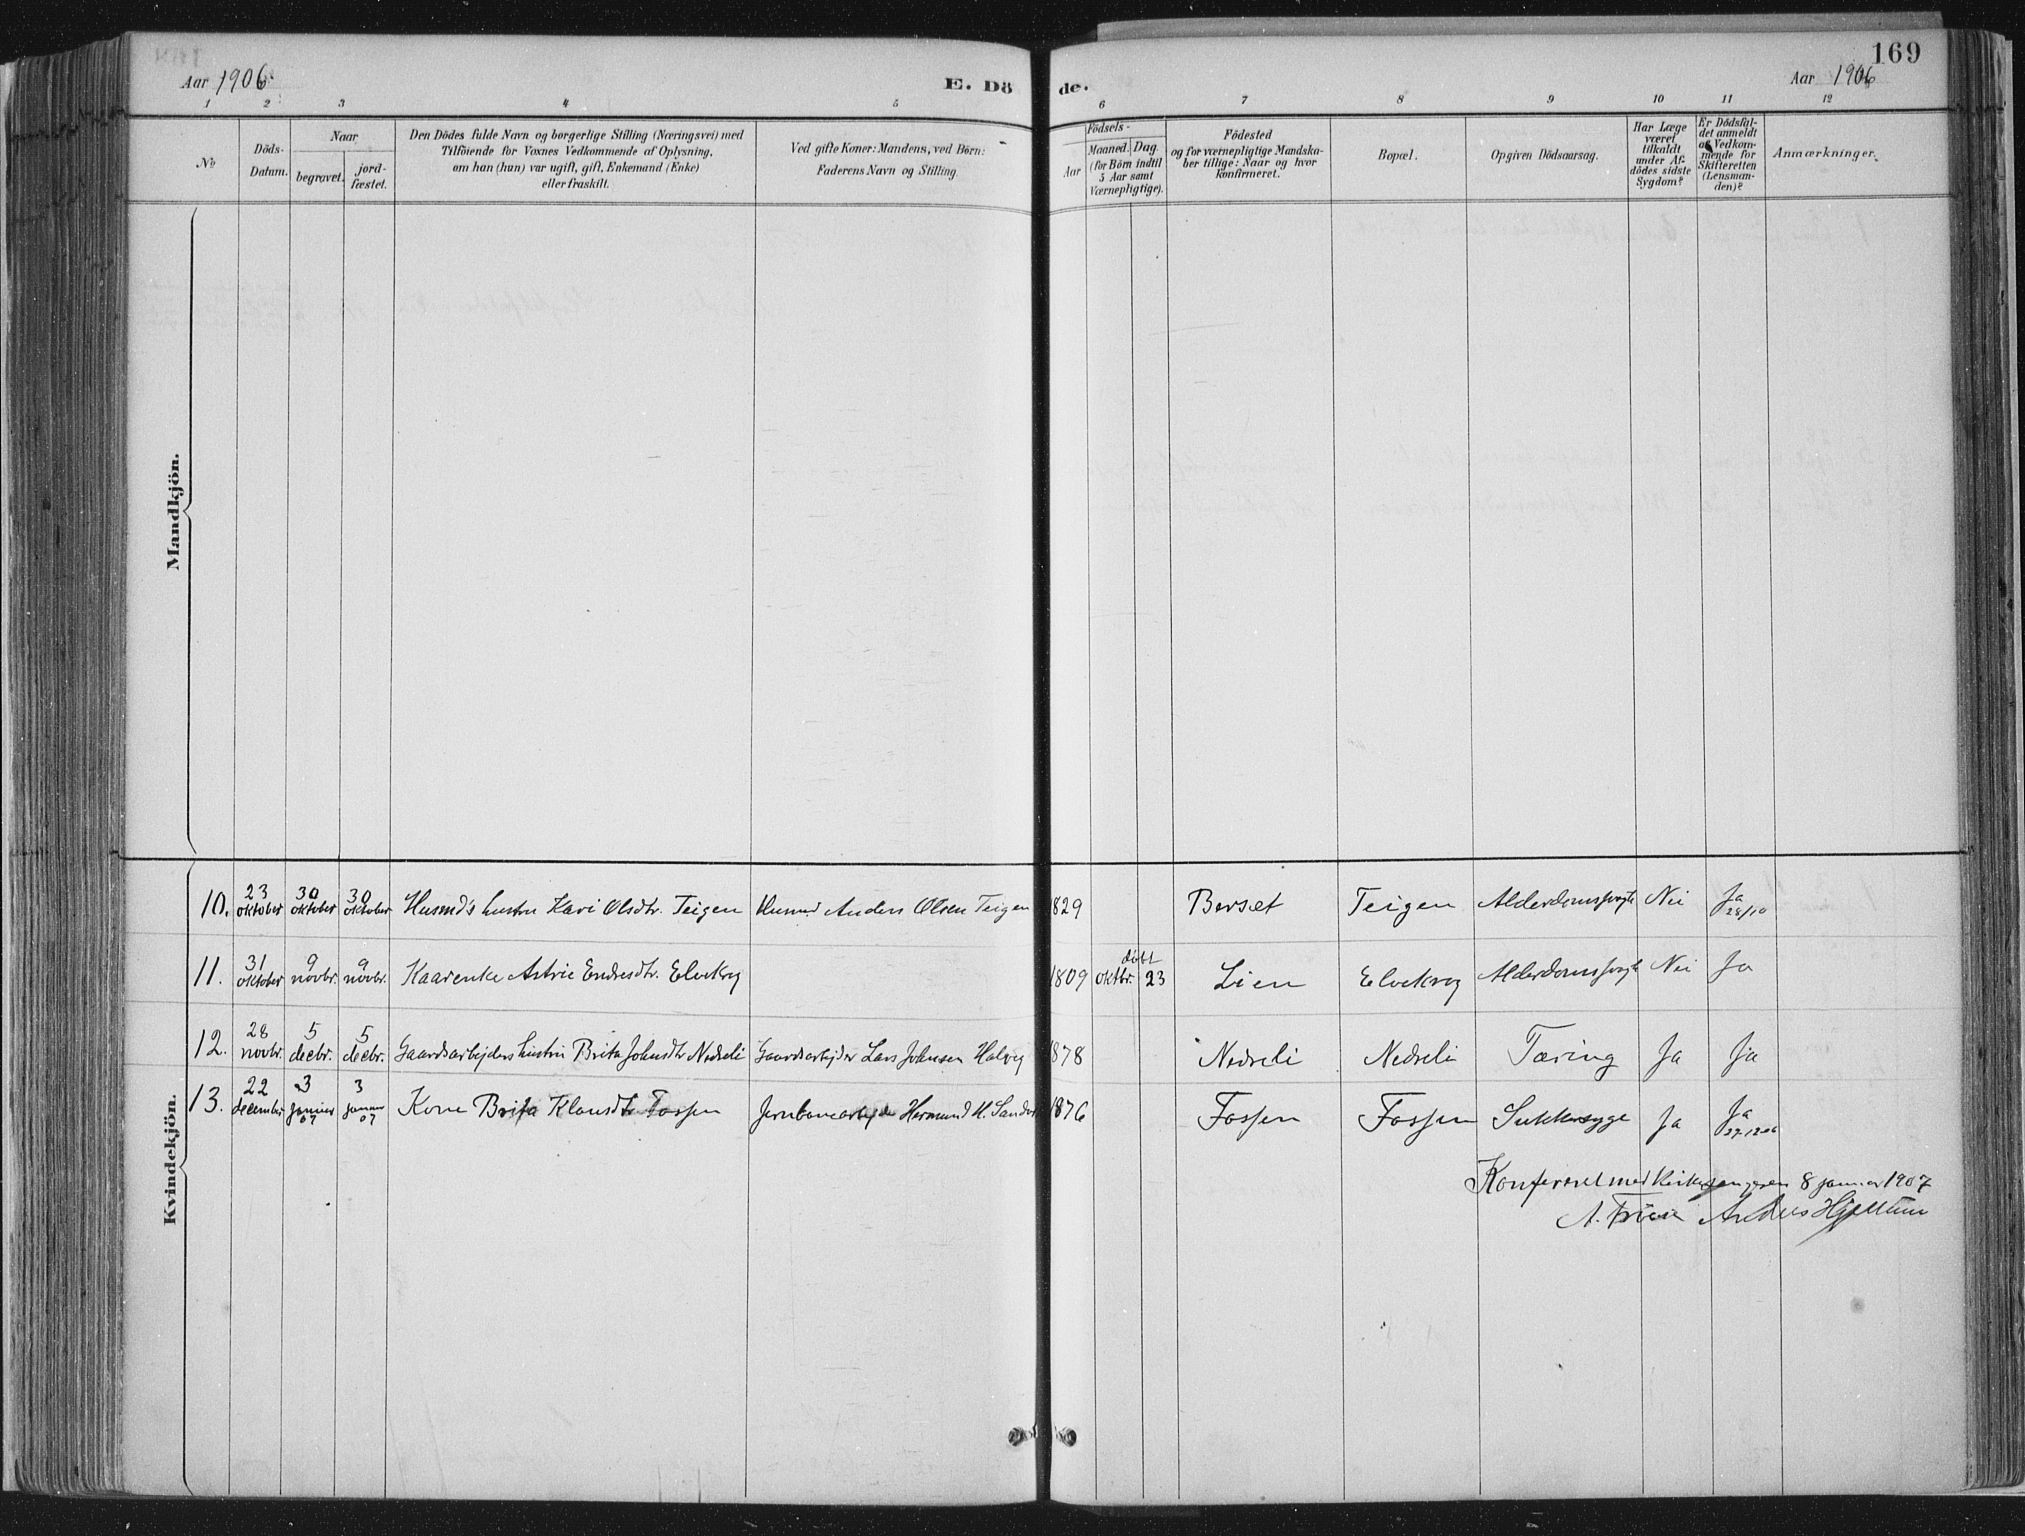 169
Aar 1906
E. Dö
de.
Aar 1906
1 2 3 4 5 6 7 8 9 10 11 12
No
Döds-
Datum.
Naar
begravet.
jord-
fæstet.
Den Dödes fulde Navn og borgerlige Stilling (Næringsvei) med
Tilföiende for Voxnes Vedkommende af Oplysning,
om han (hun) var ugift, gift, Enkemand (Enke)
eller fraskilt.
Ved gifte Koner: Mandens, ved Börn:
Faderens Navn og Stilling
Födsels-
Aar
Maaned. Dag.
(for Börn indtil
5 Aar samt
Værnepligtige).
Födested
og for værnepligtige Mandska-
ber tillige: Naar og hvor
konfirmeret.
Bopæl.
Opgiven Dödsaarsag.
Har Læge
været
tilkaldt
under Af-
dödes sidste
Sygdom?
Er Dödsfal-
det anmeldt
af Vedkom-
mende for
Skifteretten
(Lensman-
den)?
Anmærkninger.
Mandkjön.
Kvindekjön.
10. 23 oktober 30 oktober 30 oktober Husmds hustru Kari Olsdtr. Teigen Husmd Anders Olsen Teigen 1829 Berset Teigen Alderdomssvaghet Nei Ja 28/10
11. 31 oktober 9 novbr. 9 novbr. Kaarenke Astrie Endresdtr. Elvekrog 1809 oktbr. døbt 23 Lien Elvekrog Alderdomssvaghet Nei Ja
12. 28 novbr. 5 decbr. 5 decbr. Gaardsarbejders hustru Brita Johnsdtr Nedreli Gaardsarbejder Lars Johnsen Halvrig 1878 Nedreli Nedreli Tæring Ja Ja
13. 22 december 3 januar 07 3 januar 07 Kone Brita Klausdtr Fossen Jernbanearbejder Hermund H. Sander 1876 Fossen Fossen Sukkersyge Ja Ja 27-12-06
Konfereret med Kirkesangeren 8 januar 1907
A. Anders Hjeltum